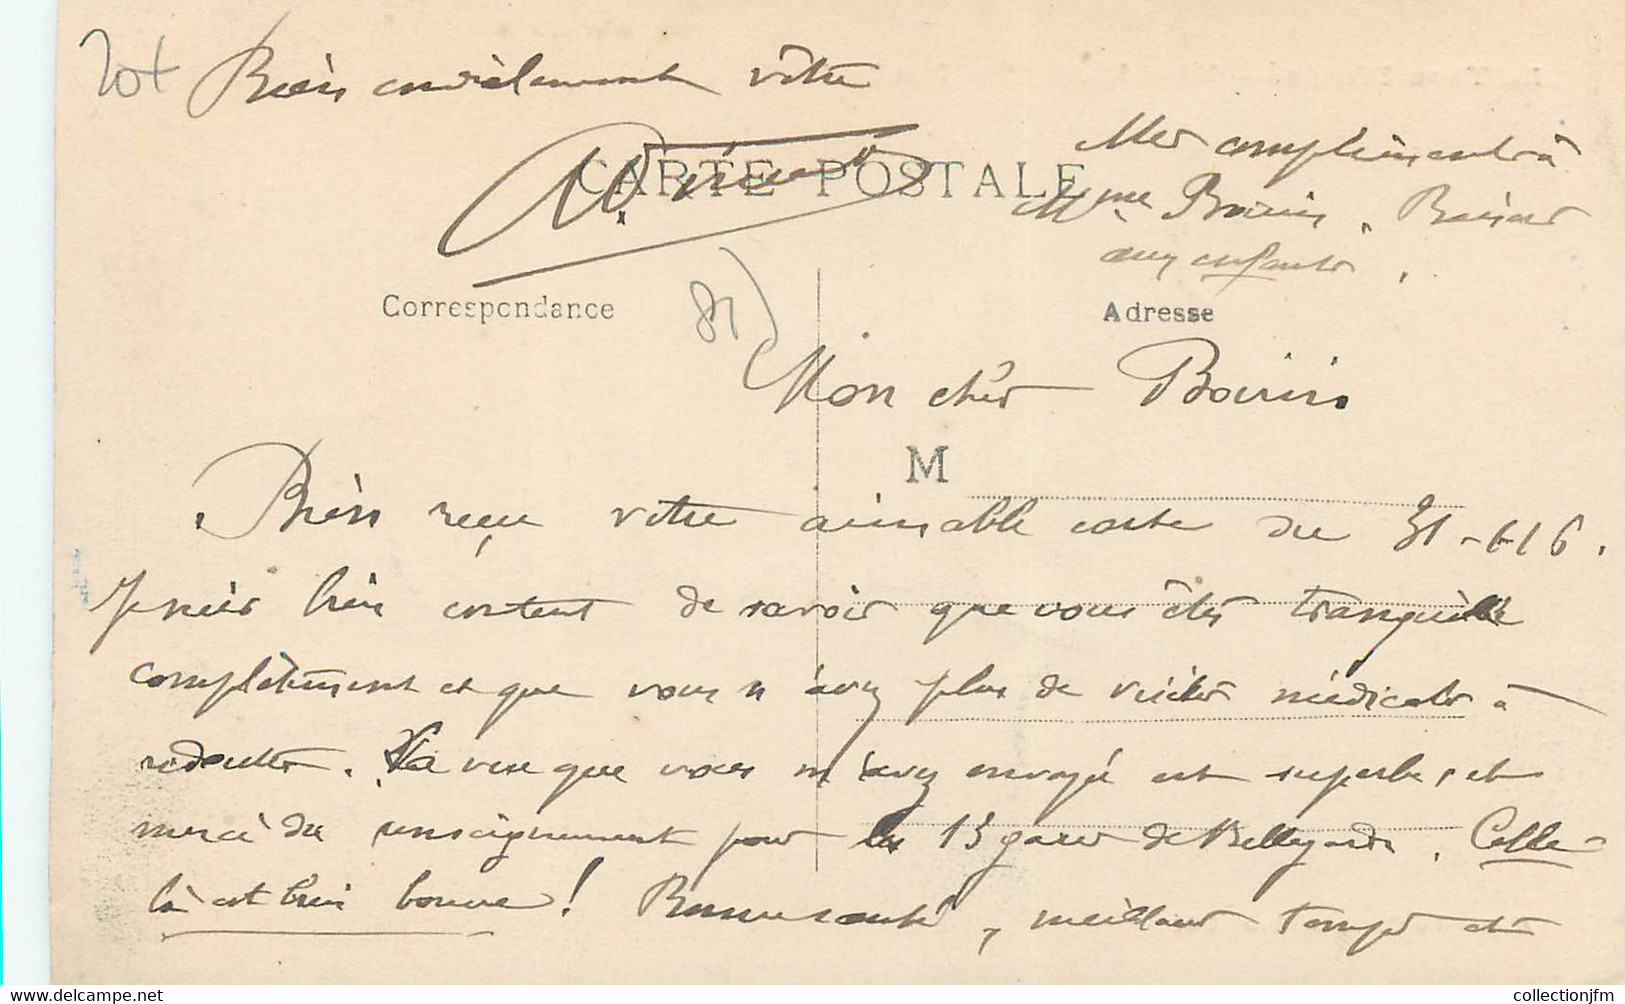 20+
Bien cordialement vôtre
Mes compliments à
CARTE POSTALE
Mme Boirin. Baisers
aux enfants.
Correspondance
81
Adresse
Mon cher Boirin.
M
Bien reçu votre aimable carte du 31-1-16.
Je suis bien content de savoir que vous êtes tranquille
complètement et que vous n'avez plus de visites médicales à
redouter. La vue que vous m'avez envoyée est superbe, et
merci du renseignement pour les 13 gares de Bellegarde. Celle-
là est bien bonne! Bonne santé, meilleur temps et
collectionjfm